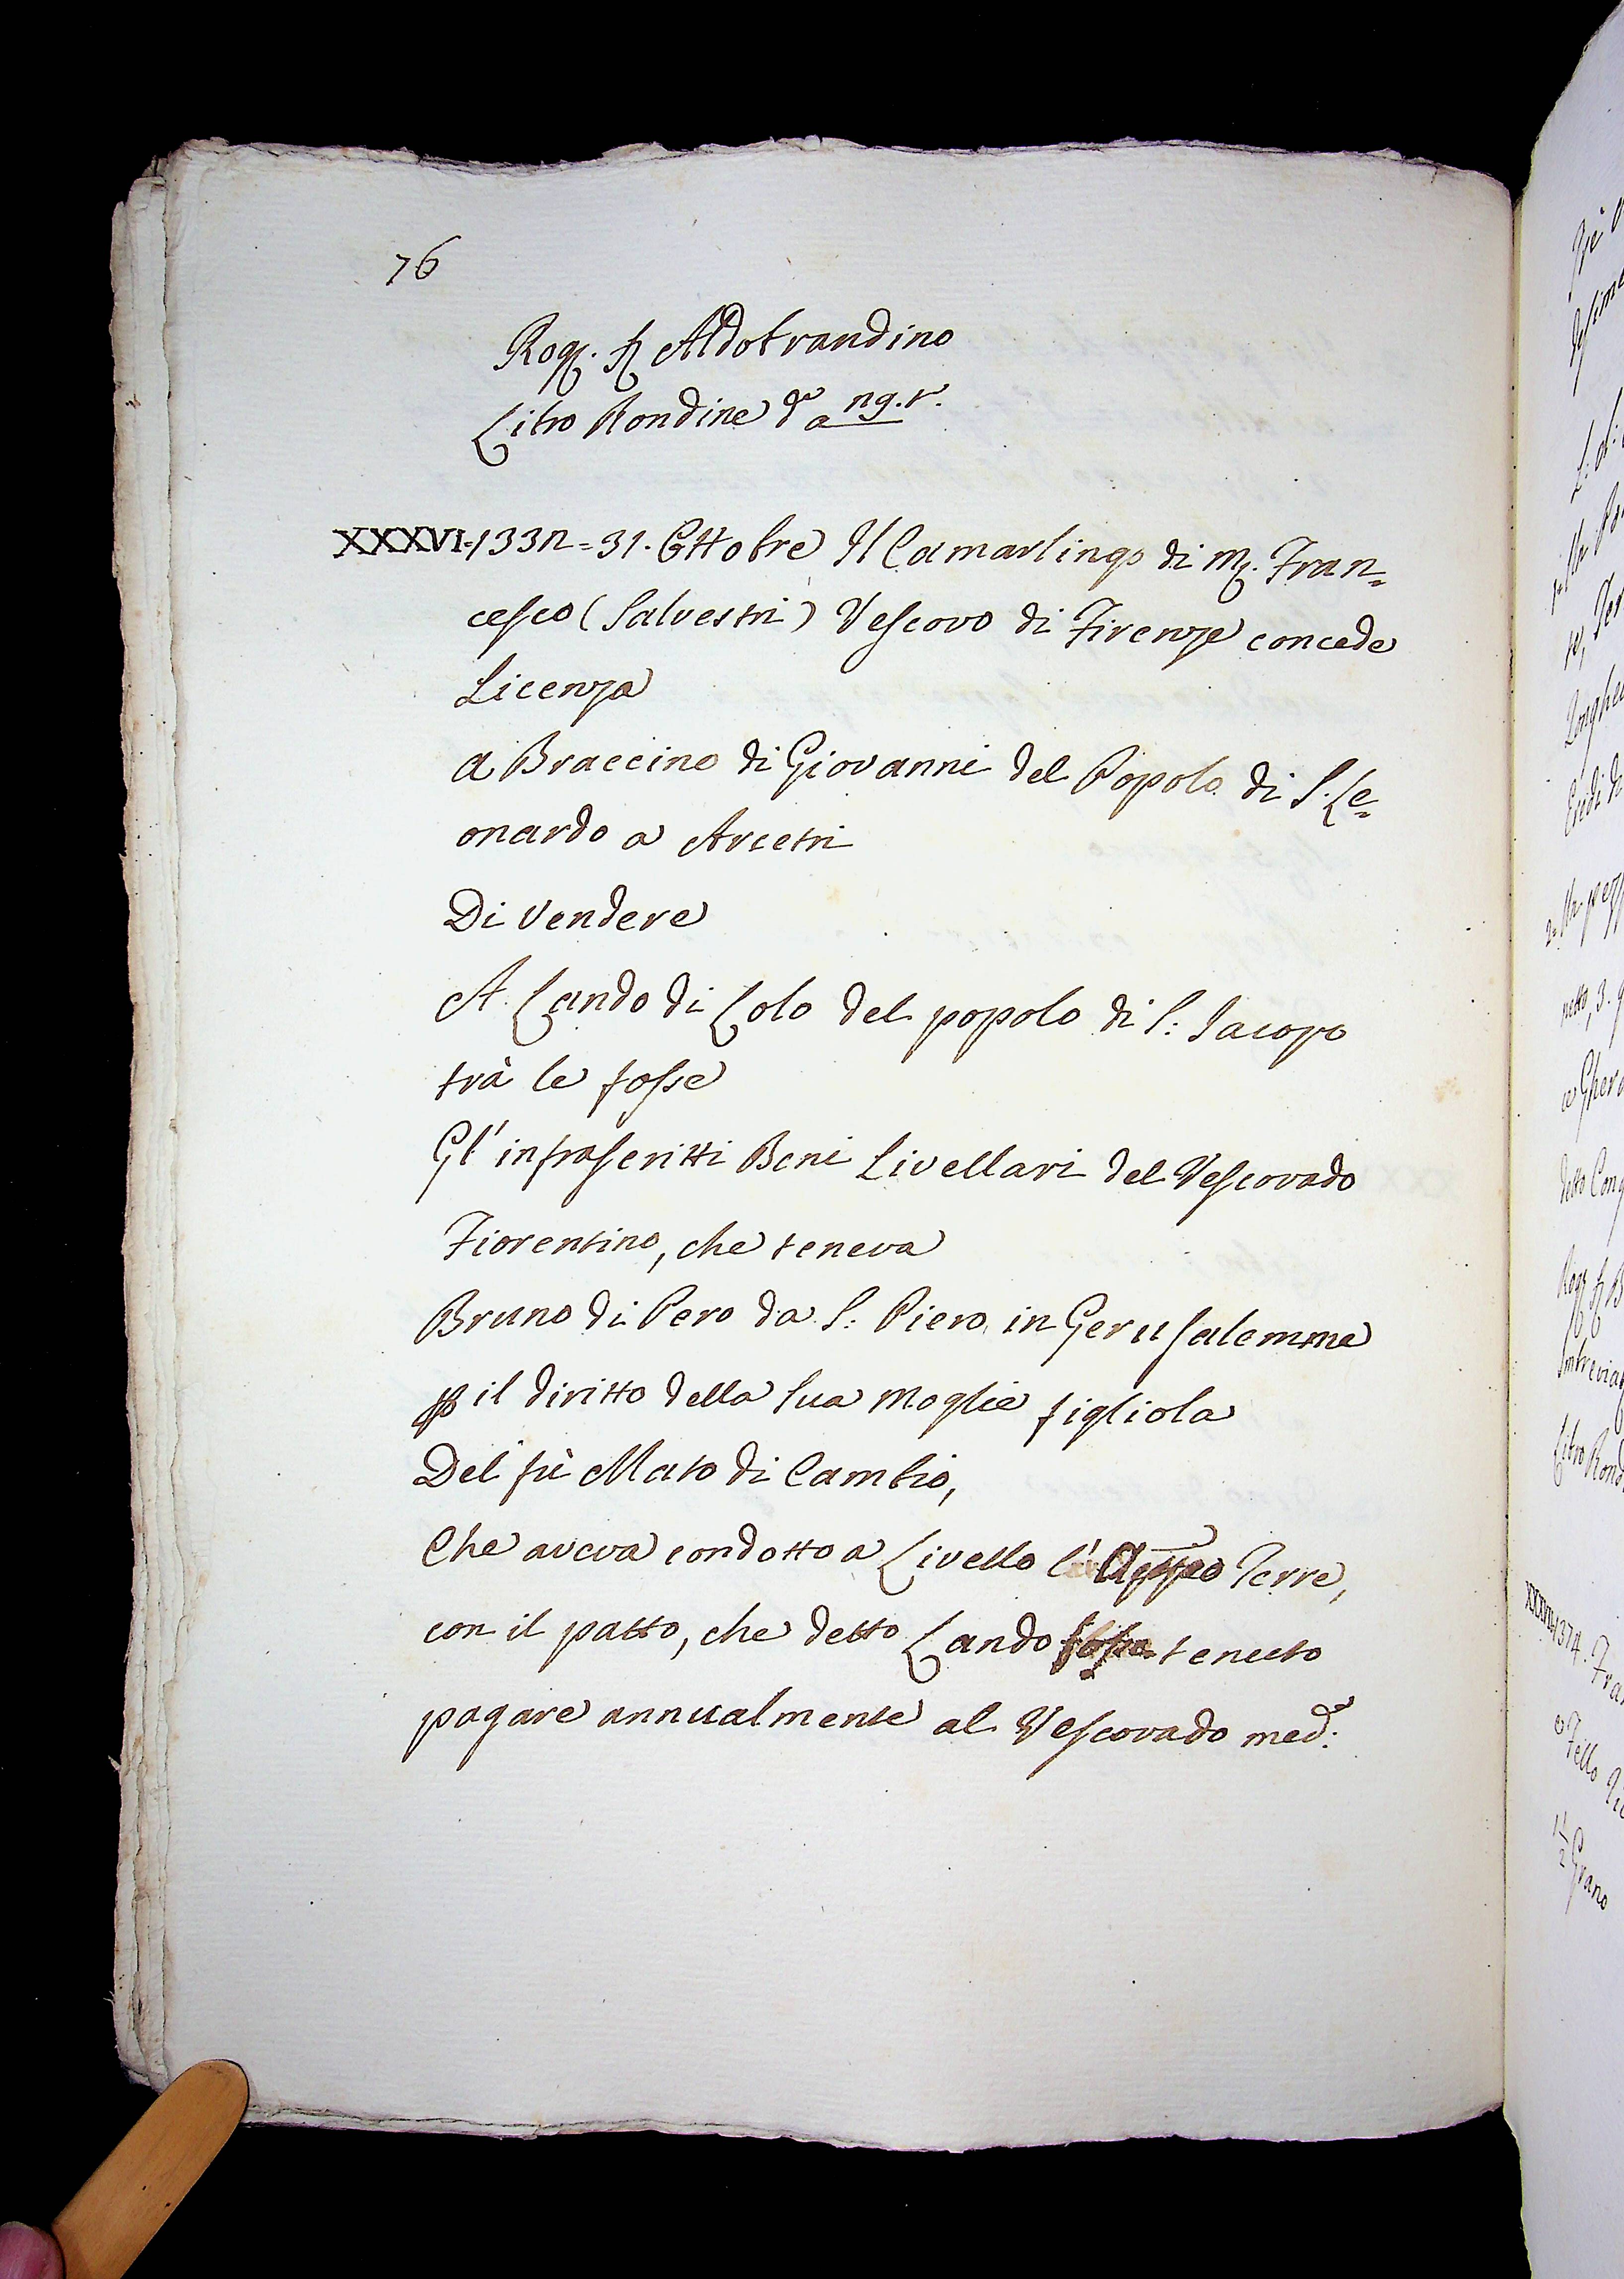 76
Rog. S. Aldobrandino
Libro Rondine d.a ng.r.
XXXVI=133n=31. Ottobre Il Camarlingo di M. Fran=
cesco (Salvestri) Vescovo di Firenze concede
Licenza
a Braccino di Giovanni del Popolo di S. Le=
onardo a Arcetri
Di Vendere
A Lando di Lolo del popolo di S: Iacopo
trà le fosse
Gl'infrascritti Beni Livellari del Vescovado
Fiorentino, che teneva
Bruno di Pero da S: Piero in Gerusalemme
p il diritto della sua Moglie figliola
Del fù Mato di Cambio,
Che aveva condotto a Livello l' Terre,
con il patto, che detto Lando fosse tenuto
pagare annualmente al Vescovado med: